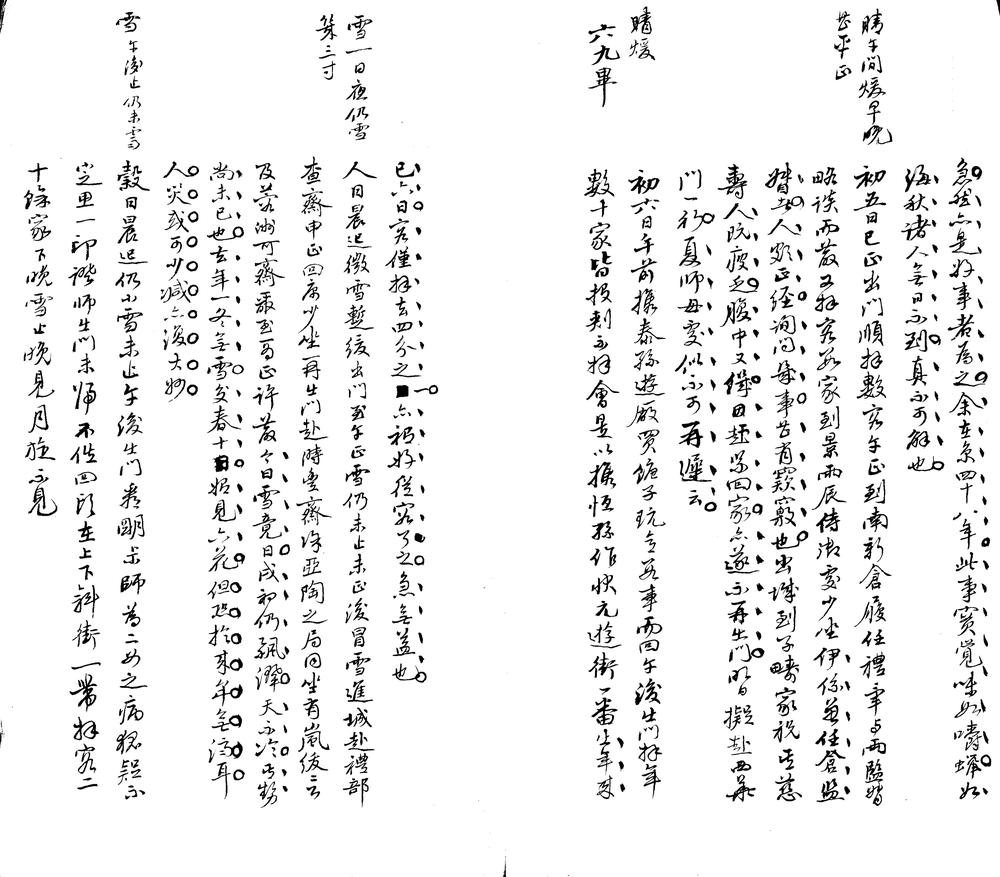 急然亦是好事者為之余在京四十八年此事實覺味如嚼蠟如
海秋諸人無日不到真不可解也
晴午間煖早晚
甚平正
初五日巳正出門順拜數客午正到南新倉履任禮畢與兩監督
略談而散又拜客數家到景雨辰侍御處少坐伊係兼任倉監
督其人頗正經詢問倉事甚有竅竅也出城到子疇家祝其慈
壽人既瘦乏腹中又餓因赶緊回家亦遂不再出門明日擬赴西華
門一行夏師母處似不可再遲云
晴煖
六九畢
初六日午前攜泰孫遊廠買鏡子玩意數事而回午後出門拜年
數十家皆損刺不拜會是以攜恆孫作快元遊街一番少年來
已六日客僅拜去四分之一亦祇好從容了之急無益也
雪一日夜仍雪
幾三寸
人日晨起微雪暫緩出門至午正雪仍未止未正後冒雪進城赴禮部
查齋中正回廉少坐再出門赴時豐齋徐亞陶之局同坐有嵐俊云
及若洲可齋噩至焉正許散今日雪竟日戌初仍飄灑天不冷其勢
尚未已也去年一冬無雪交春十日始見六花但恐於來年無濟耳
人災或可少減亦復大妙
雪午後止仍未霽
穀日晨起仍小雪未止午後出門秦明求師為二女之病猶疑不
定里一印證師出門未歸不俟回頭在上下斜街一帶拜客二
十餘家下晚雪止晚見月旋不見